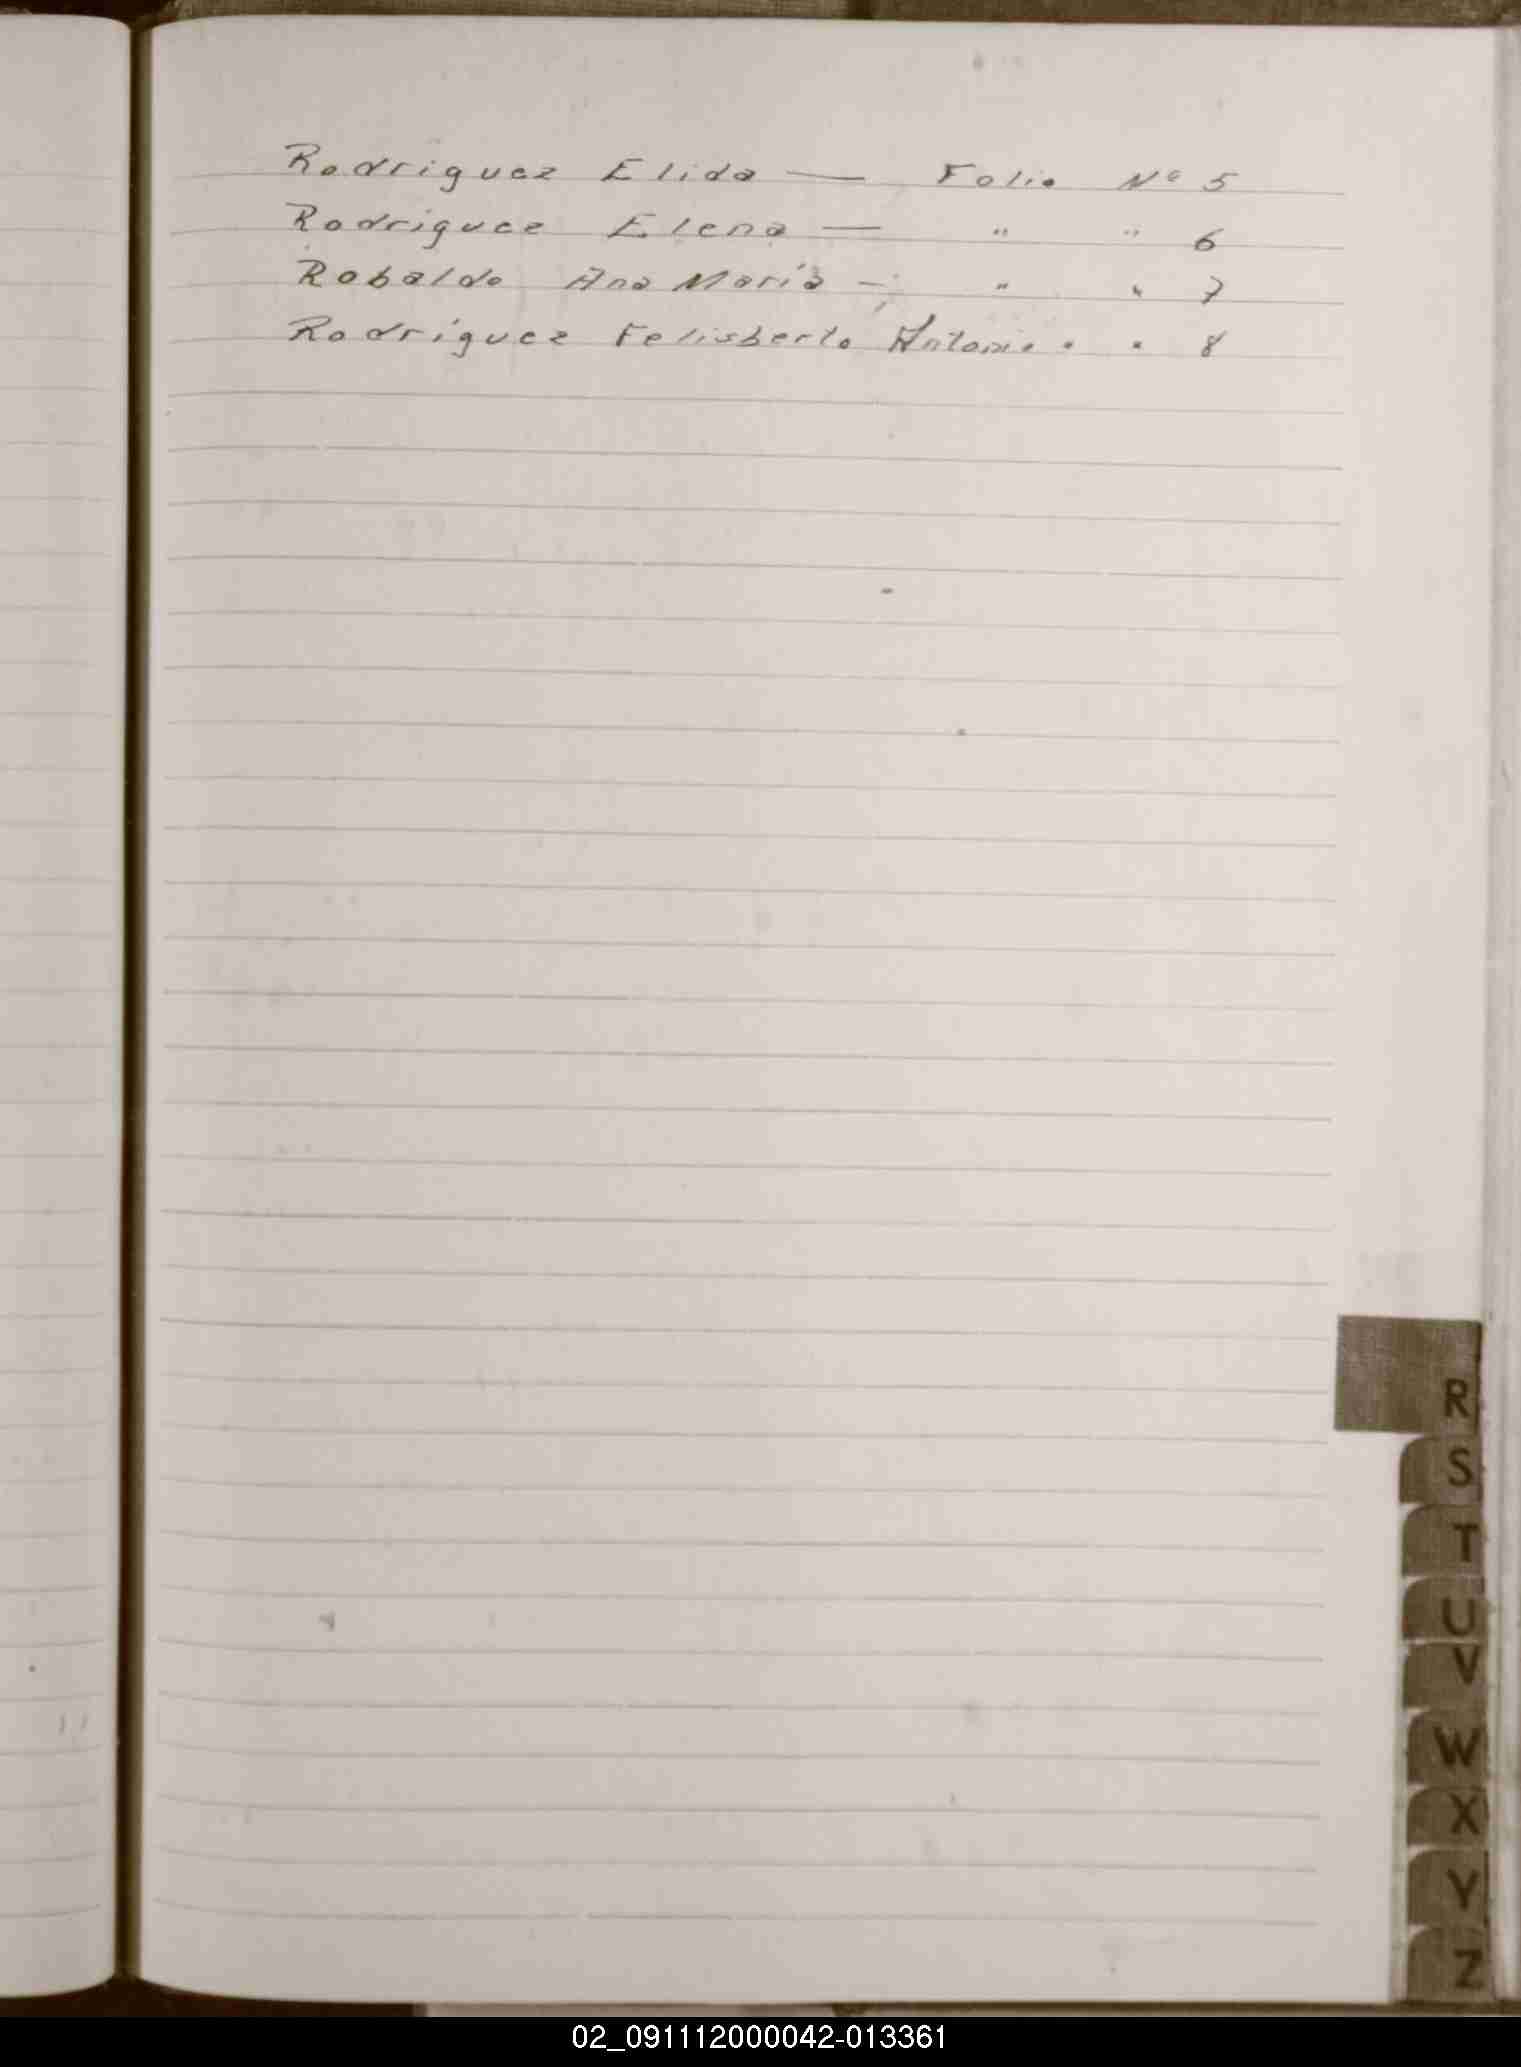 Rodriguez Elida — Folio Nº 5
Rodriguez Elena — " " 6
Robaldo Ana María — " " 7
Rodríguez Felisberto Antonio " " 8
R
S
T
U
V
W
X
Y
Z
02_091112000042-013361